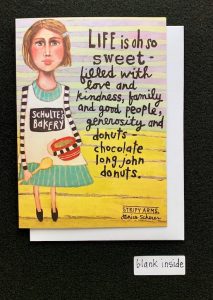 LIFE is oh so
sweet -
filled with
love and
kindness, family
and good people,
generosity and
donuts -
chocolate
long john
donuts.
SCHULTE'S
BAKERY
STRIPY ARMS.
blank inside